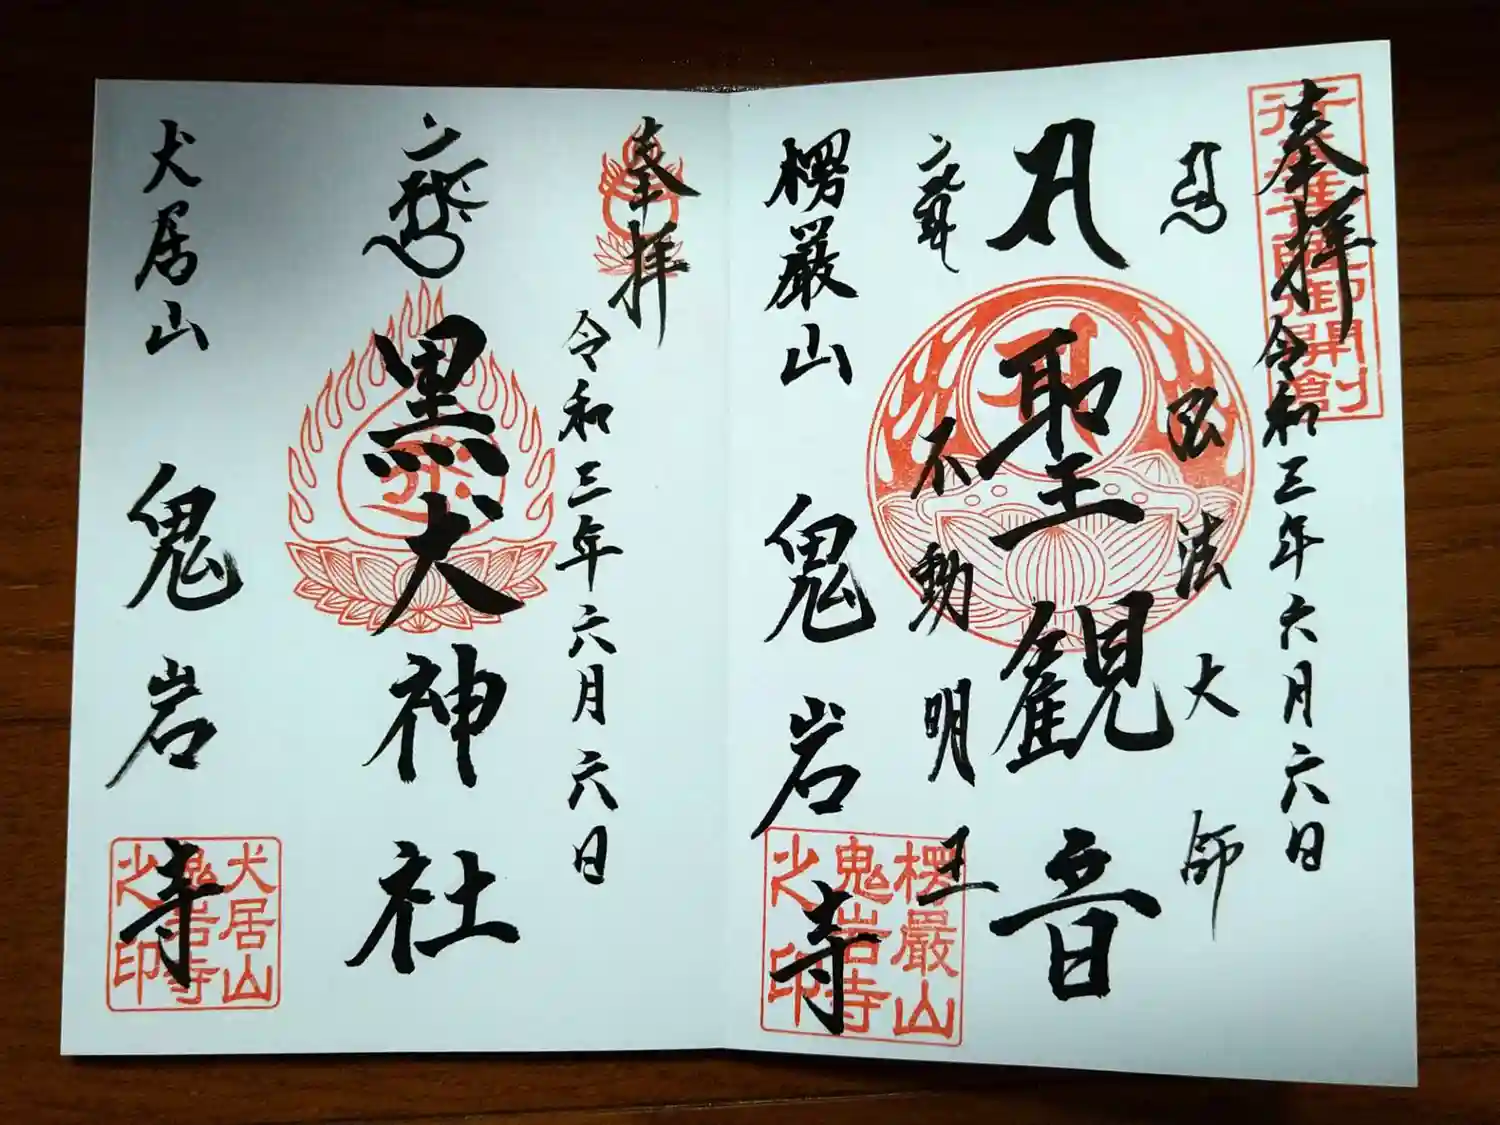 奉拝
令和三年六月六日
行基菩薩御開創
弘法大師
聖観音
不動明王
楞厳山
鬼岩寺
楞厳山
鬼岩寺
之印
奉拝
令和三年六月六日
黒犬神社
犬居山
鬼岩寺
犬居山
鬼岩寺
之印